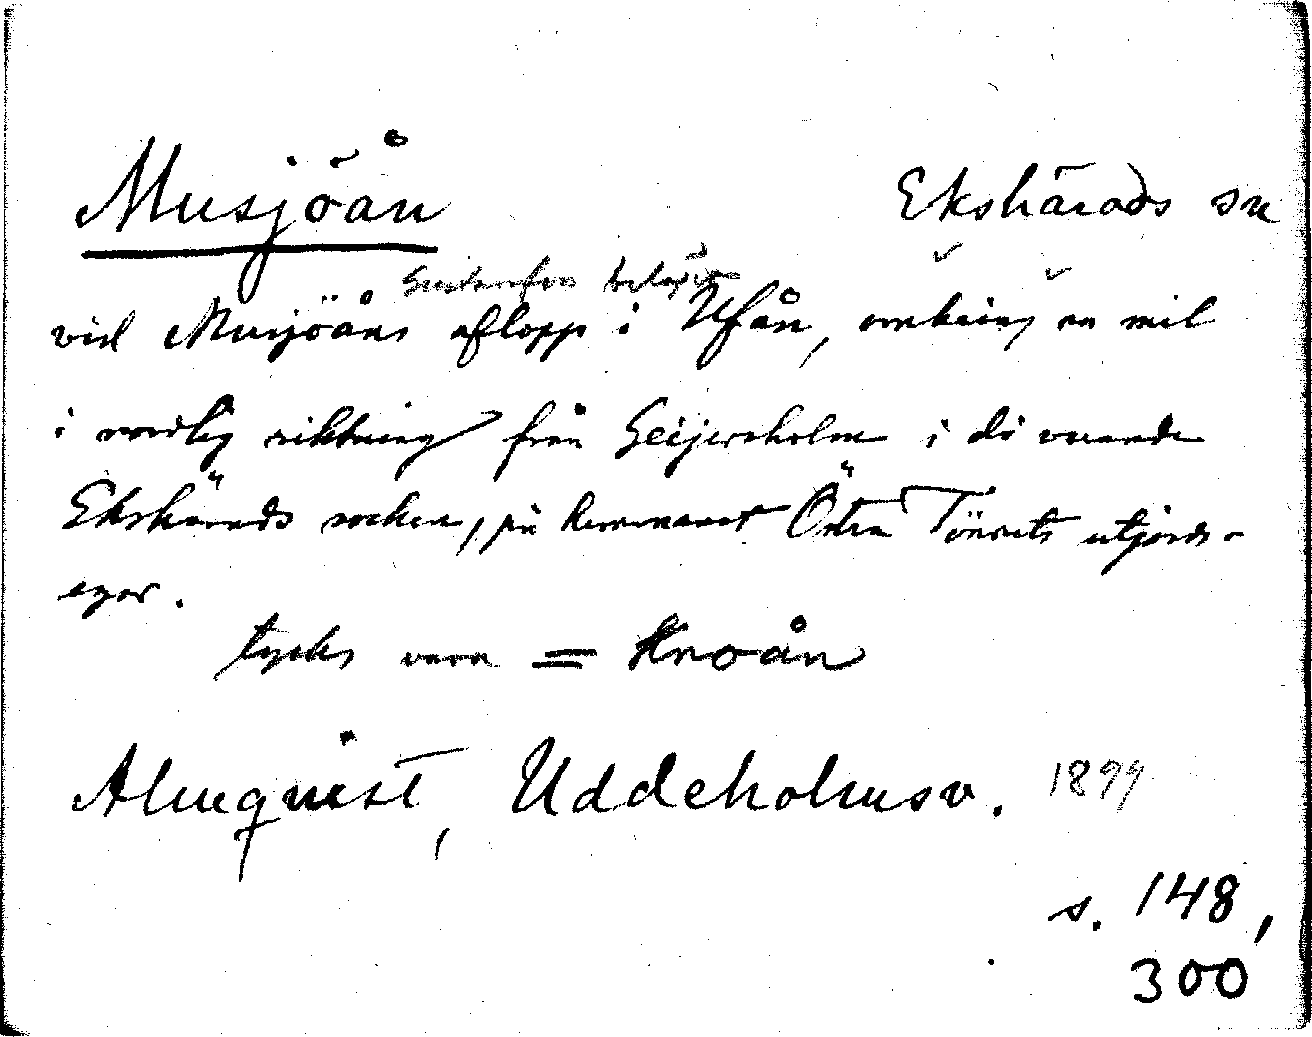 Musjöån Ekshärads sn
Gustavfon belägen
vid Musjöåns aflopp i Ufån, omkring en mil
i nordlig riktning från Geijersholm i då varande
Ekshärads socken, på hemmanet Östra Tönsets utjords-
egor.
tycks vara = Knoån
Almqvist, Uddeholmsv. 1899
s. 148,
300